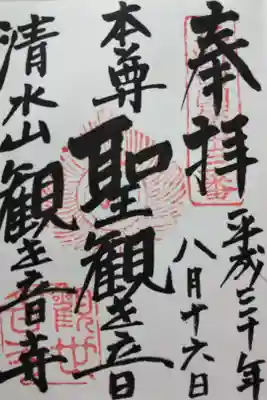 奉拝
平成三十年
八月十六日
本尊
聖観世音
清水山
観世音寺